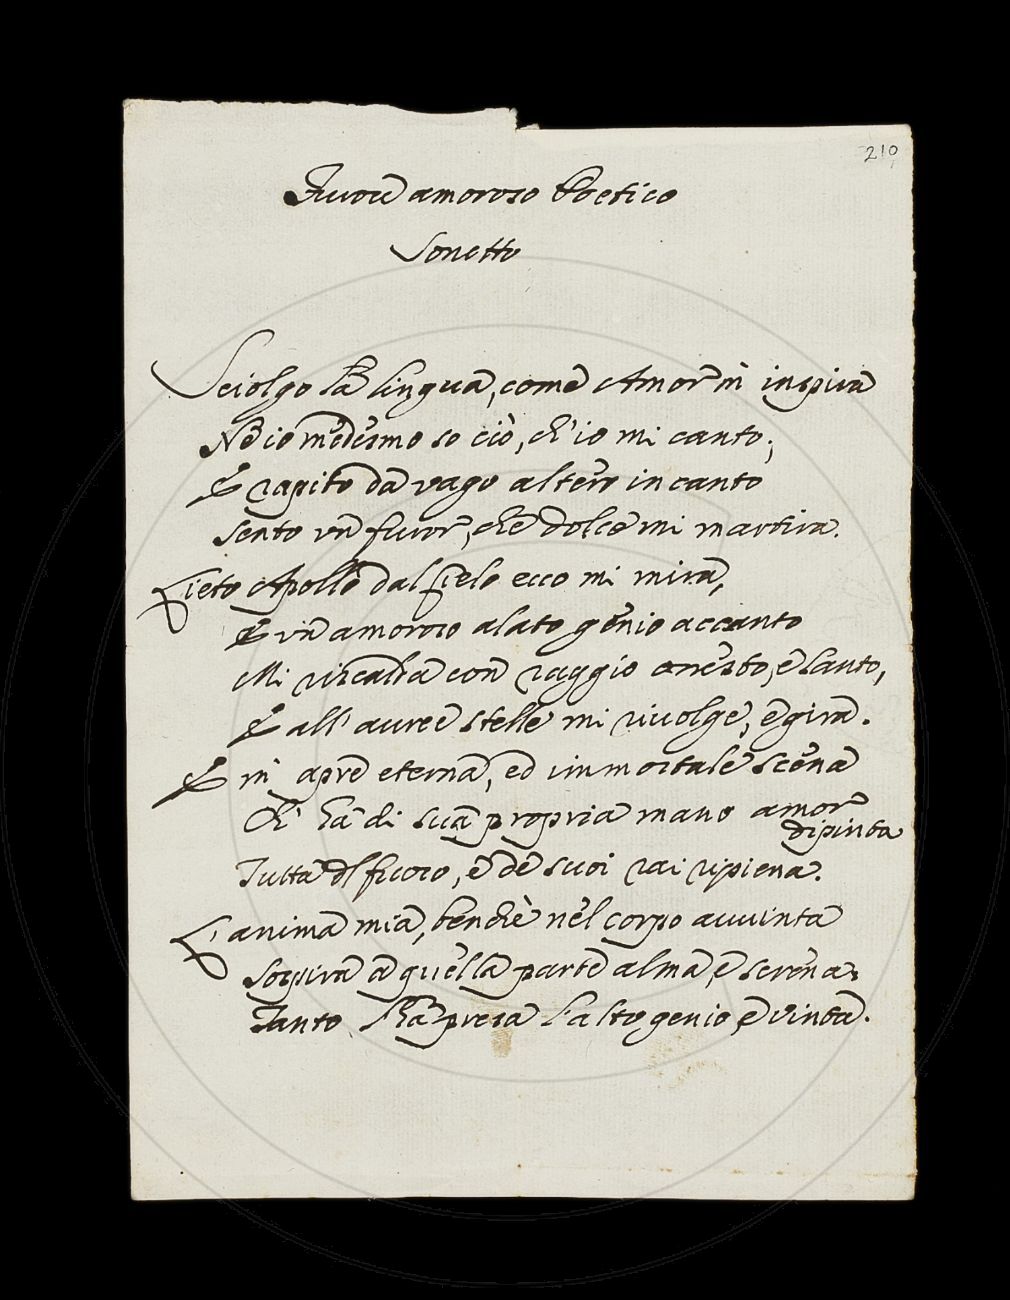 210
Furore amoroso Poetico
Sonetto
Sciolgo la lingua, come Amor m'inspira
Ne io medesmo so ciò, ch'io mi canto;
E rapito da vago altero incanto
sento un furor, che dolce mi martira.
Lieto Apollo dal Cielo ecco mi mira,
E un amoroso alato genio accanto
Mi riscalda con raggio onesto, e santo,
E all' auree stelle mi rivolge, e gira.
E m' apre eterna, ed immortale scena
Ch' ha di sua propria mano amor
dipinta
Tutta di fuoco, e de suoi rai ripiena.
L'anima mia, benchè nel corpo avvinta
Sospira a quella parte alma, e serena;
Tanto l'ha presa l'alto genio e vinta.